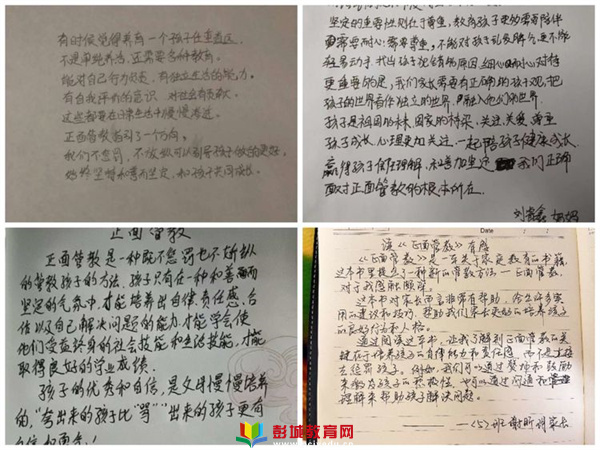 有时候觉得养育一个孩子任重道远
不是单纯养活,还需要各种教育。
能对自己行为负责,有独立生活的能力。
有自我评价的意识,对社会有贡献。
这些都要在日常生活中慢慢渗透。
正面管教指引了一个方向。
我们不惩罚、不
始终坚持和善而坚定,和孩子共同成长。
坚定的重要性则在于尊重,教育孩子更加需要陪伴
更需要耐心;需要尊重,不能对孩子乱发脾气更不能
找出孩子犯错的原因,细心耐心对待
更重要的是,我们家长需要有正确的孩子观,把
孩子的世界看作独立的世界,融入他们的世界
孩子是祖国的林,国家的栋梁,关注、关爱、尊重
孩子成长、心理更加关注,一起陪孩子健康成长
赢得孩子信任理解,
面对正面管教的根本所在。
刘
妈妈
正面管教
正面管教是一种既不惩罚也不娇纵
的管教孩子的方法,孩子只有在一种和善而
坚定的气氛中,才能培养出自律、责任感、合
作以及自己解决问题的能力,才能学会使
他们受益终身的社会技能和生活技能,才能
取得良好的学业成绩。
孩子的优秀和自信,是父母慢慢培养
的,“夸出来的孩子比“骂”出来的孩子更有
Date
读《正面管教》有感
《正面管教》是一本关于家庭教育的书籍
这本书里提出了一种新的管教方法——正面管教,
对于我感触颇深。
这本书对家长而言非常有帮助,
的建议和技巧,帮助我们家长更好的培养孩子
的良好行为和人格。
通过阅读这本书,让我了解到正面管教的关
键在于培养孩子的自律能力和责任感,而不是
去惩罚孩子。例如,我们可以通过赞扬和鼓励
来激发孩子的积极性,也可以通过沟通和
理解来帮助孩子解决问题。
——(5)班 谢
家长
彭城教育网